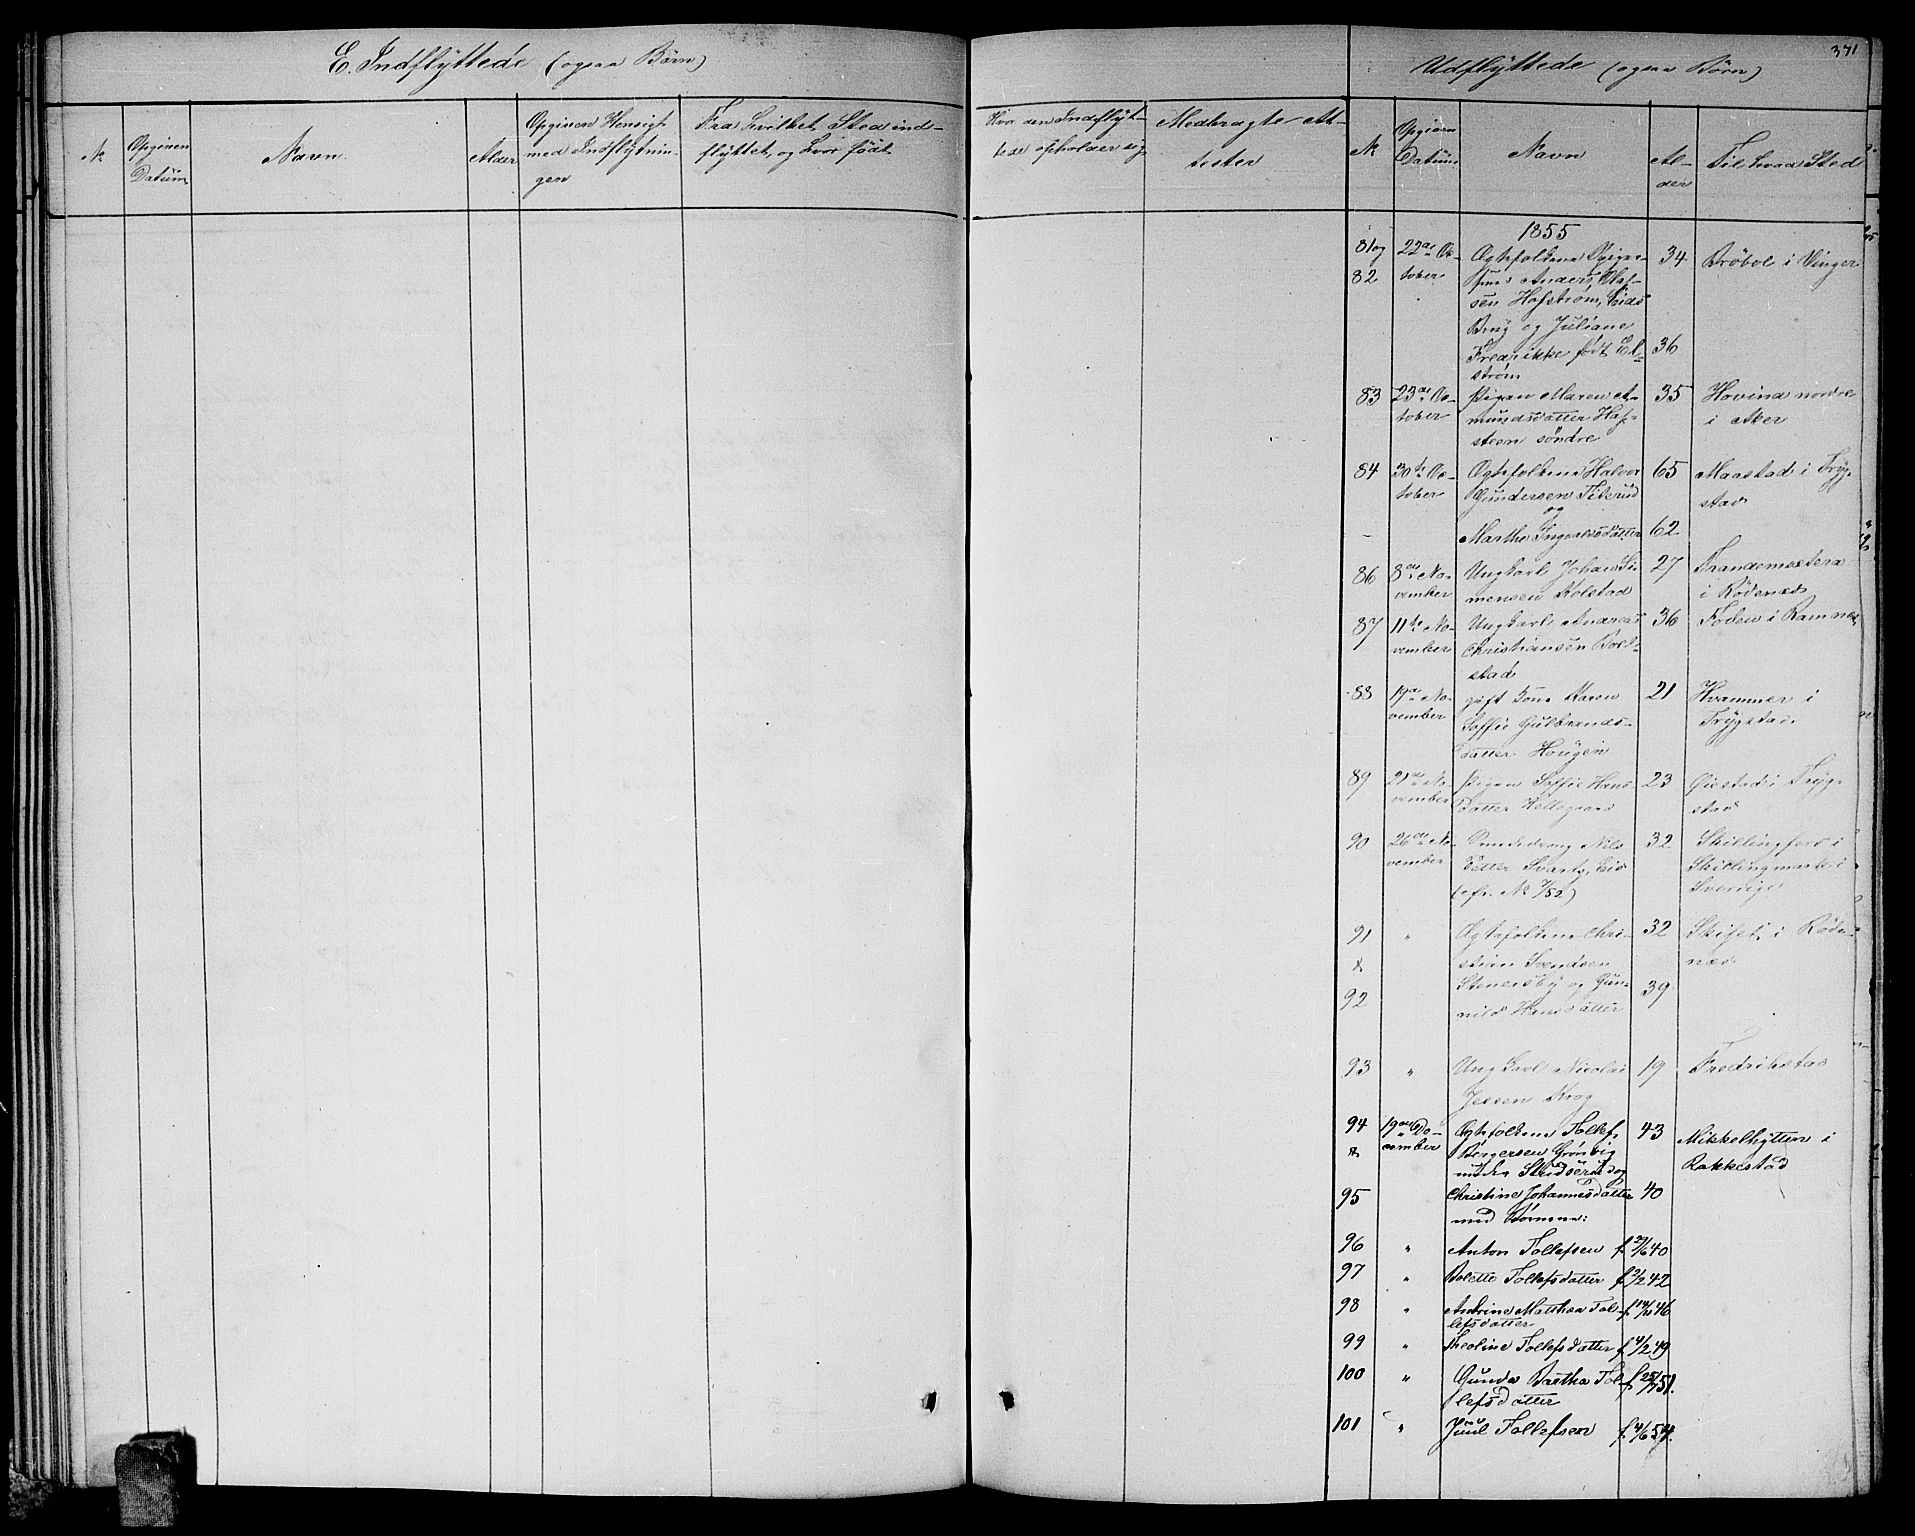 E. Indflyttede (ogsaa Børn)
Udflyttede (ogsaa Børn)
371
No
Opgiven
Datum
Navn
Alder
Opgiven Hensigt
med Indflytnin-
gen
Fra hvilket Sted ind-
flyttet, og hvor født
Hvor den Indflyt-
tede opholder sig
Medbragte At-
tester
No
Opgiven
Datum
Navn
Al-
der
Til hvad Sted
1855
81 og
82
22de Oc-
tober
Ægtefolkene
Anders Olaf-
sen Hafstrøm, Eids
Brug og Juliane
Fredrikke født El-
strøm
34
36
Brøbøl i Vinger
83
23de Oc-
tober
Pigen Maren A-
mundsdatter Haf-
steen søndre
35
Hovind nordre
i Aker
84
30te Oc-
tober
Ægtefolkene Halvor
Gundersen Titerud
og
Marthe Ingvaldsdatter
65
62
Maastad i Tryg-
stad
86
8de No-
vember
Ungkarl Johan Si-
mensen Kolstad
27
Trandemsætera
i Rødenæs
87
11te No-
vember
Ungkarl Andreas
Christiansen Bol-
stad
36
Foden i Ramnes
88
19de No-
vember
gift Kone Karen
Soffie Gulbrands-
datter Hougen
21
Hvammer i
Trygstad
89
21de No-
vember
Pigen Soffie Hans
datter Hellegaard
23
Giestad i Tryg-
stad
90
26de No-
vember
Nils
Petter Svarts, Eid
(cfr. No 7/52)
32
Skillingfors i
Skillingmark i
Sverrige
91
&
92
"
Ægtefolkene Chri-
stian Svendsen
Stenersby og Gun-
nild Hansdatter
32
39
Skiset i Røde-
næs
93
"
Ungkarl Nicolai
Jessen Krog
19
Fredrikstad
94
&
95
19de De-
cember
Ægtefolkene Tollef
Børgersen Grønvig
under Skidserud og
Christine Johannesdatter
med Børnene:
43
40
Mikkelhytten i
Rakkestad
96
"
Anton Tollefsen
f 29/6 40
97
"
Bolette Tollefsdatter
f 2/2 42
98
"
Andrine Matthea Tol-
lefsdatter
f 14/10 46
99
"
Theoline Tollefsdatter
f 4/2 49
100
"
Gunda Bertha Tol-
lefsdatter
f 25/7 51.
101
"
Juul Tollefsen
f. 4/6 54.